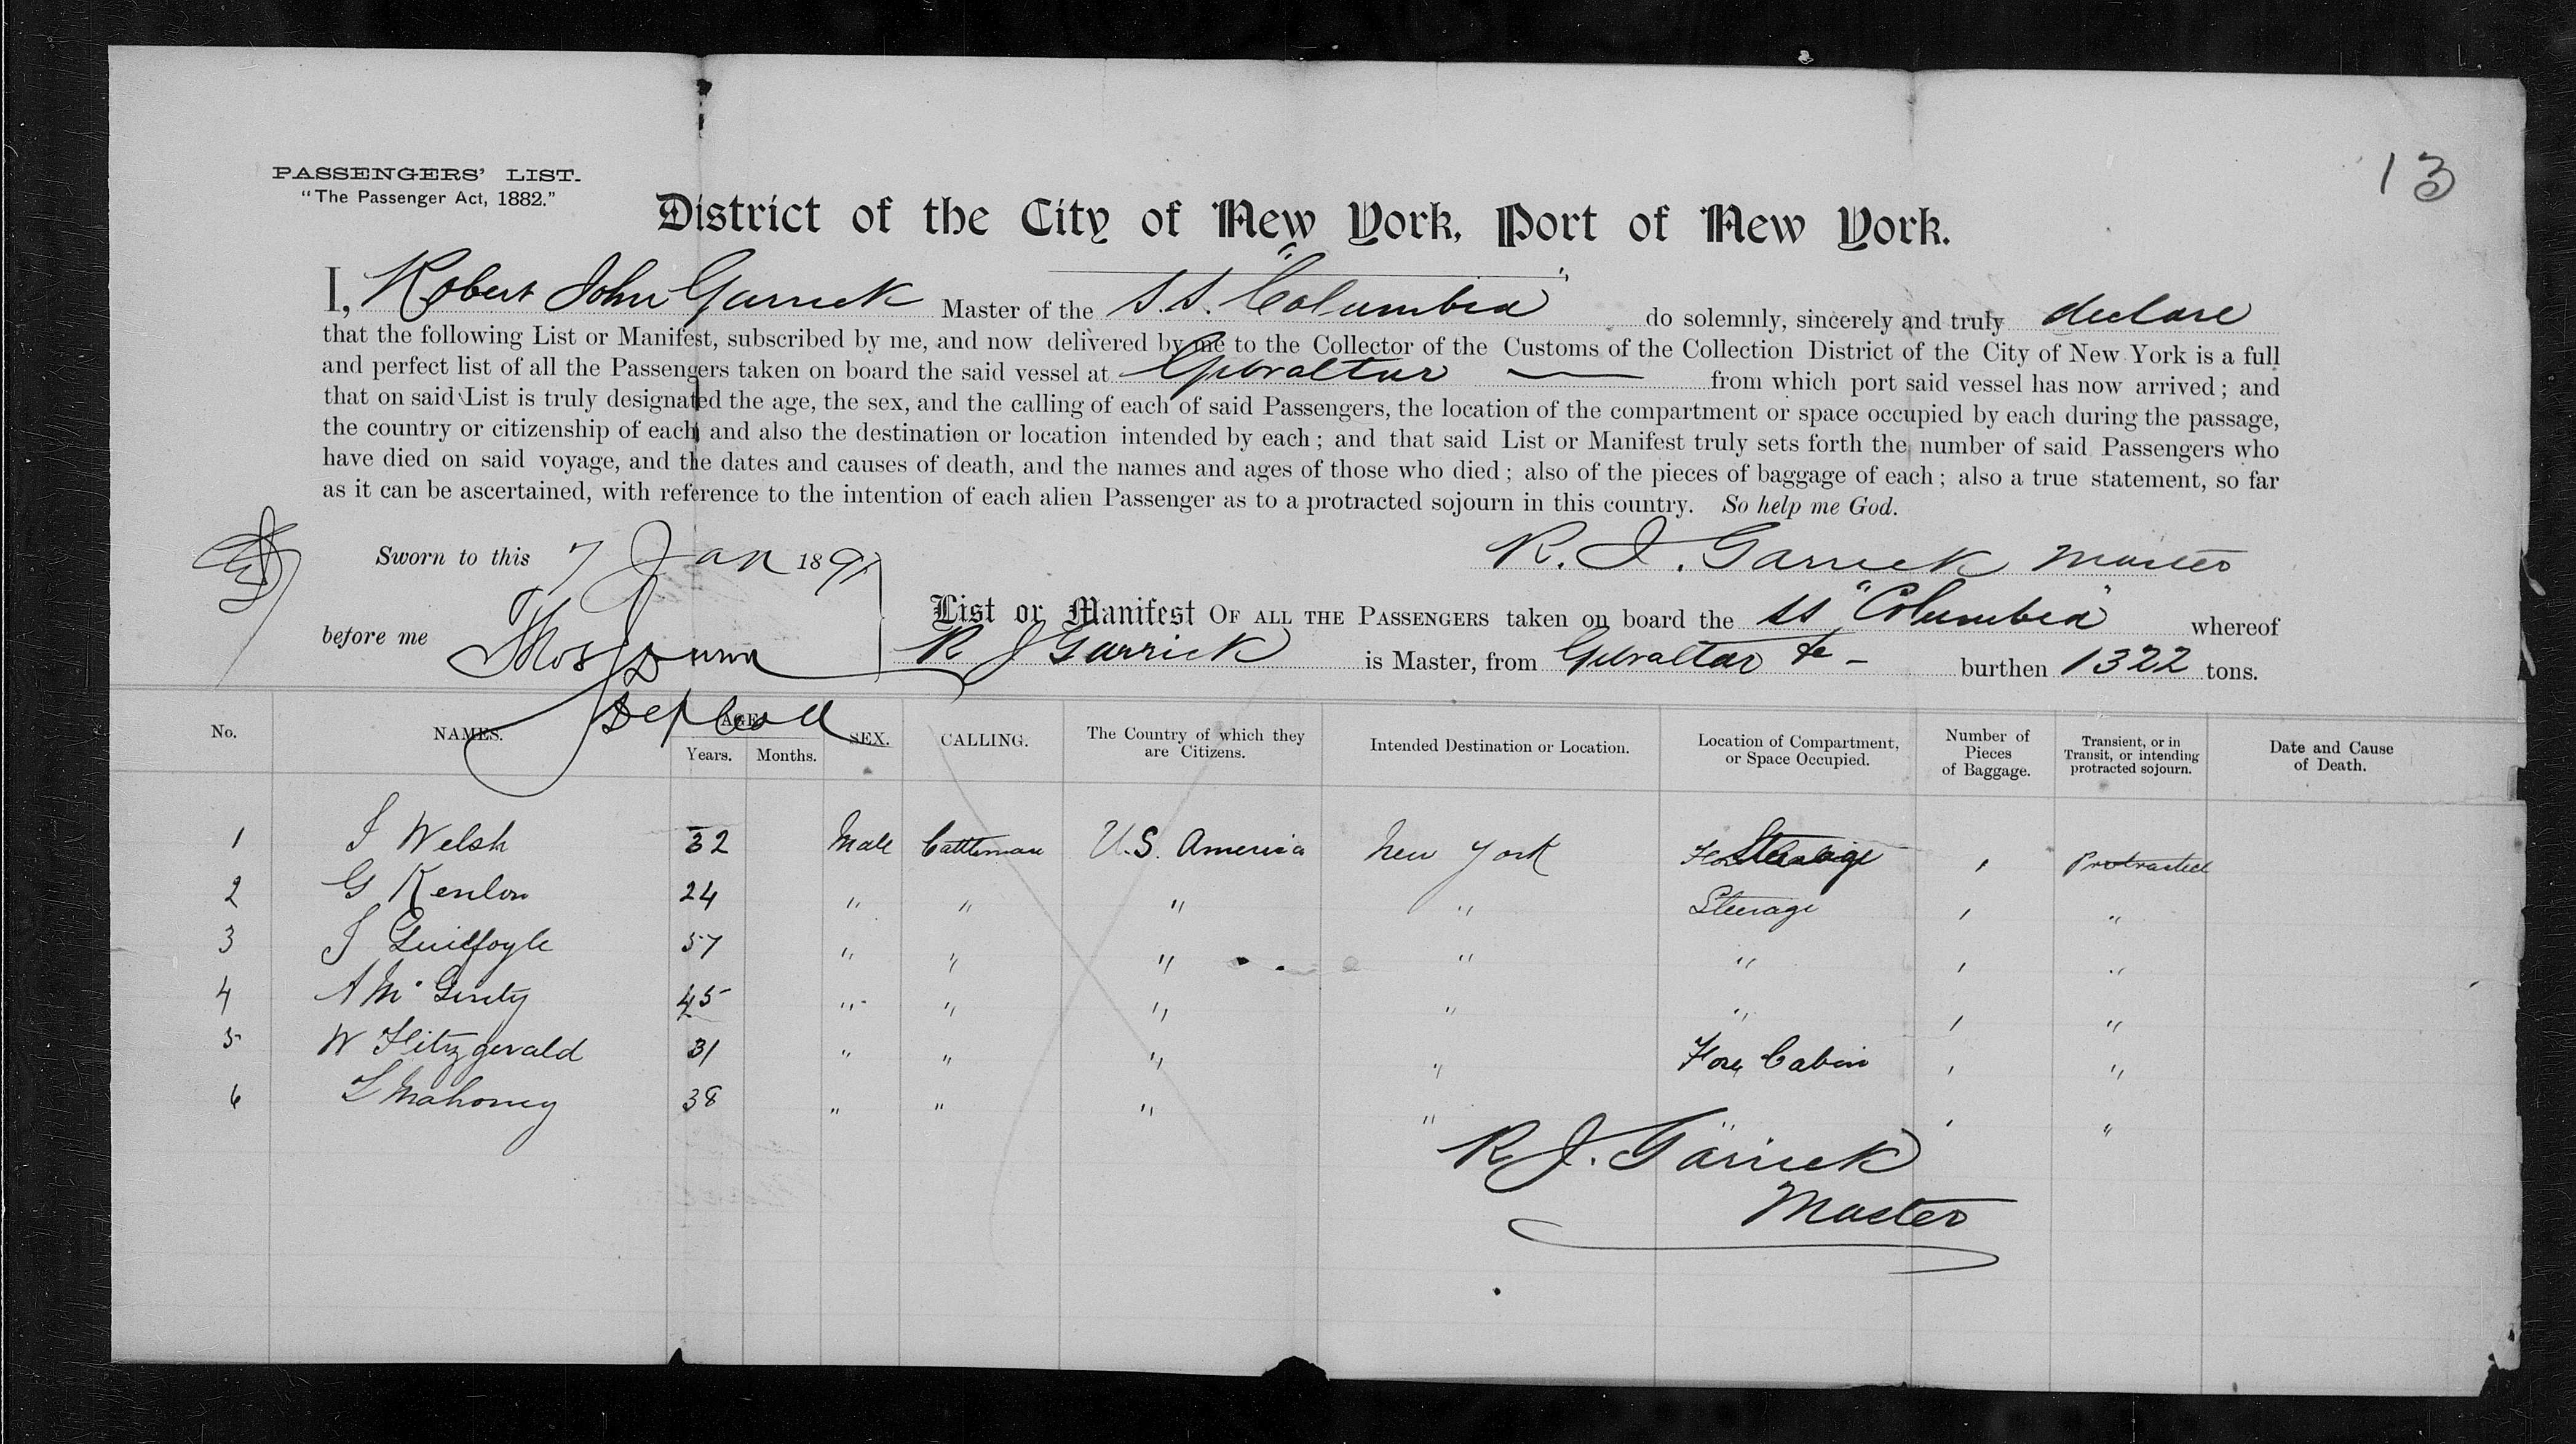 13
PASSENGERS' LIST.
"The Passenger Act, 1882."
District of the City of New York, Port of New York.
I, Robert John Garrick Master of the S.S. "Columbia" do solemnly, sincerely and truly declare
that the following List or Manifest, subscribed by me, and now delivered by me to the Collector of the Customs of the Collection District of the City of New York is a full
and perfect list of all the Passengers taken on board the said vessel at Gibraltar — from which port said vessel has now arrived; and
that on said List is truly designated the age, the sex, and the calling of each of said Passengers, the location of the compartment or space occupied by each during the passage,
the country or citizenship of each and also the destination or location intended by each; and that said List or Manifest truly sets forth the number of said Passengers who
have died on said voyage, and the dates and causes of death, and the names and ages of those who died; also of the pieces of baggage of each; also a true statement, so far
as it can be ascertained, with reference to the intention of each alien Passenger as to a protracted sojourn in this country. So help me God.
Sworn to this 7 Jan 1891 R. J. Garrick Master
before me Thos Dunn
Dep Coll
List or Manifest OF ALL THE PASSENGERS taken on board the SS "Columbia" whereof
R J Garrick is Master, from Gibraltar &c - burthen 1322 tons.
No. NAMES. AGE. Years. Months. SEX. CALLING. The Country of which they are Citizens. Intended Destination or Location. Location of Compartment, or Space Occupied. Number of Pieces of Baggage. Transient, or in Transit, or intending protracted sojourn. Date and Cause of Death.
1 J Welsh 32 Male Cattleman U.S. America New York Steerage 1 Protracted
2 G Kenlon 24 " " " " Steerage 1 "
3 J Guilfoyle 57 " " " " " 1 "
4 A McGinty 45 " " " " " 1 "
5 W Fitzgerald 31 " " " " Fore Cabin 1 "
6 L Mahoney 38 " " " " " 1 "
R. J. Garrick
Master